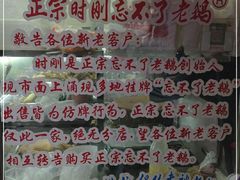 正宗时刚忘不了老鹅®
敬告各位新老客户:
时刚是正宗忘不了老鹅创始人
现市面上涌现多地挂牌“忘不了老鹅”
出售皆为仿牌行为,正宗忘不了老鹅
仅此一家,绝无分店,望各位新老客户
相互转告购买正宗忘不了老鹅。